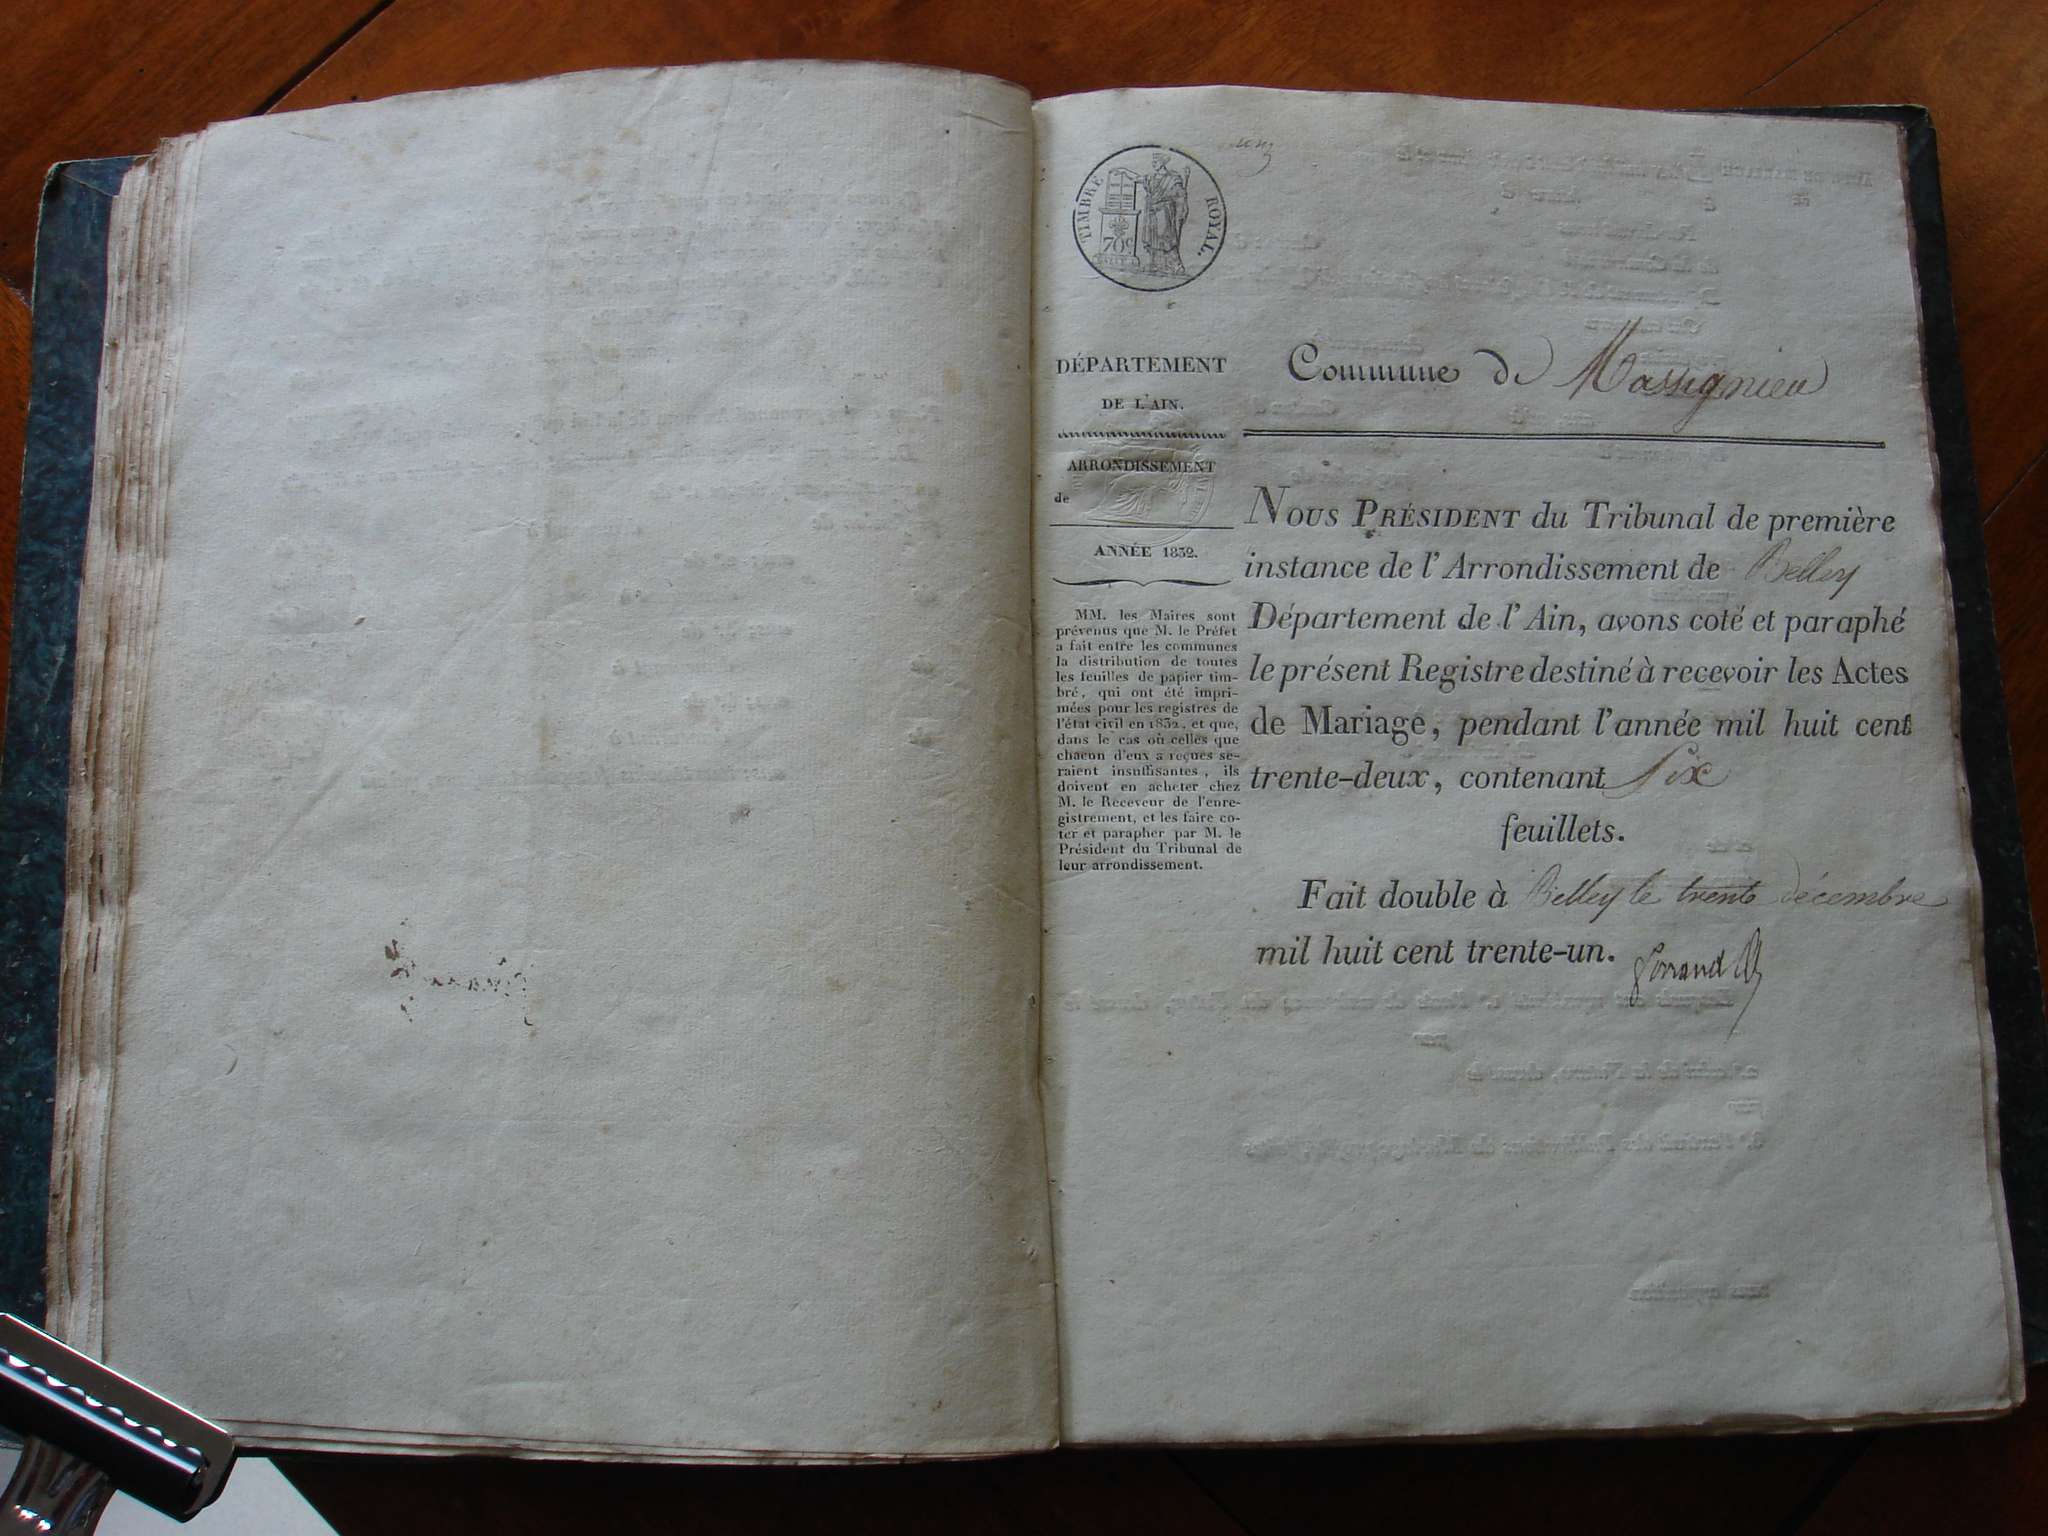 TIMBRE ROYAL.
70c
DÉPARTEMENT
DE L'AIN.
ARRONDISSEMENT
de
ANNÉE 1832.
MM. les Maires sont
prévenus que M. le Préfet
a fait entre les communes
la distribution de toutes
les feuilles de papier tim-
bré, qui ont été impri-
mées pour les registres de
l'état civil en 1832, et que,
dans le cas où celles que
chacun d'eux a reçues se-
raient insuffisantes, ils
doivent en acheter chez
M. le Receveur de l'enre-
gistrement, et les faire co-
ter et parapher par M. le
Président du Tribunal de
leur arrondissement.
Commune de Massignieu
NOUS PRÉSIDENT du Tribunal de première
instance de l'Arrondissement de Belley
Département de l'Ain, avons coté et paraphé
le présent Registre destiné à recevoir les Actes
de Mariage, pendant l'année mil huit cent
trente-deux, contenant Six
feuillets.
Fait double à Belley le trente décembre
mil huit cent trente-un.